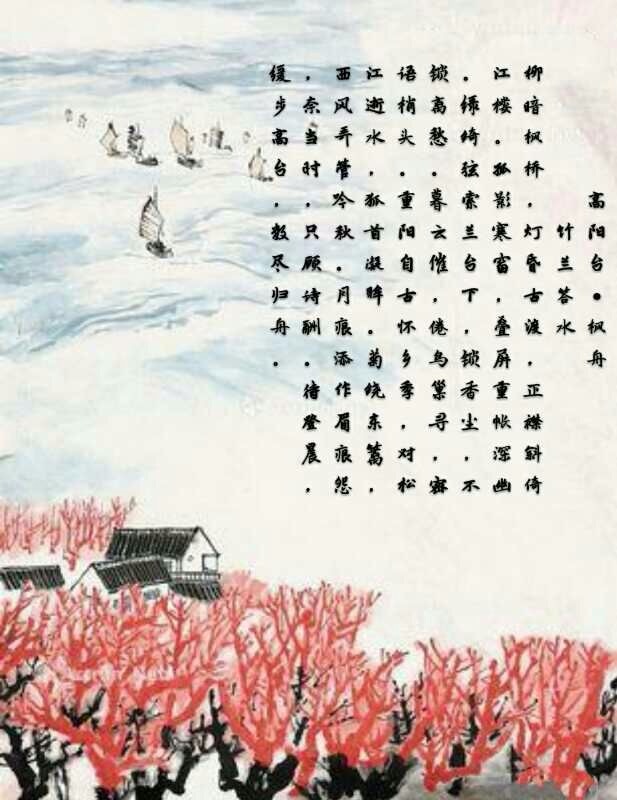 高阳台•枫舟
竹兰答水
柳暗枫桥，灯昏古渡，正襟斜倚
江楼。孤影寒窗，叠屏重帐深幽
。绿绮弦索兰台下，锁香尘，不
锁高愁。暮云催，倦乌巢寻，寐
语梢头。重阳自古怀乡季，对松
江逝水，孤首凝眸。菊绕东篱，
西风弄管吟秋。月痕添作眉痕怨
，奈当时，只顾诗酬。待澄晨，
缓步高台，数尽归舟。